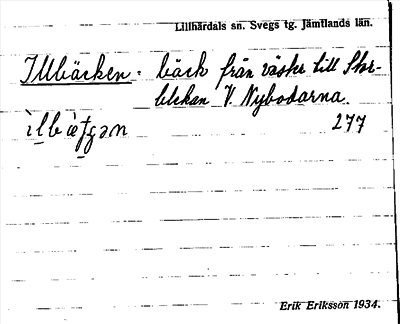 Lillhärdals sn. Svegs tg. Jämtlands län.
Illbäcken. bäck från väster till Stor-
blekan V. Nybodarna.
277
Erik Eriksson 1934.